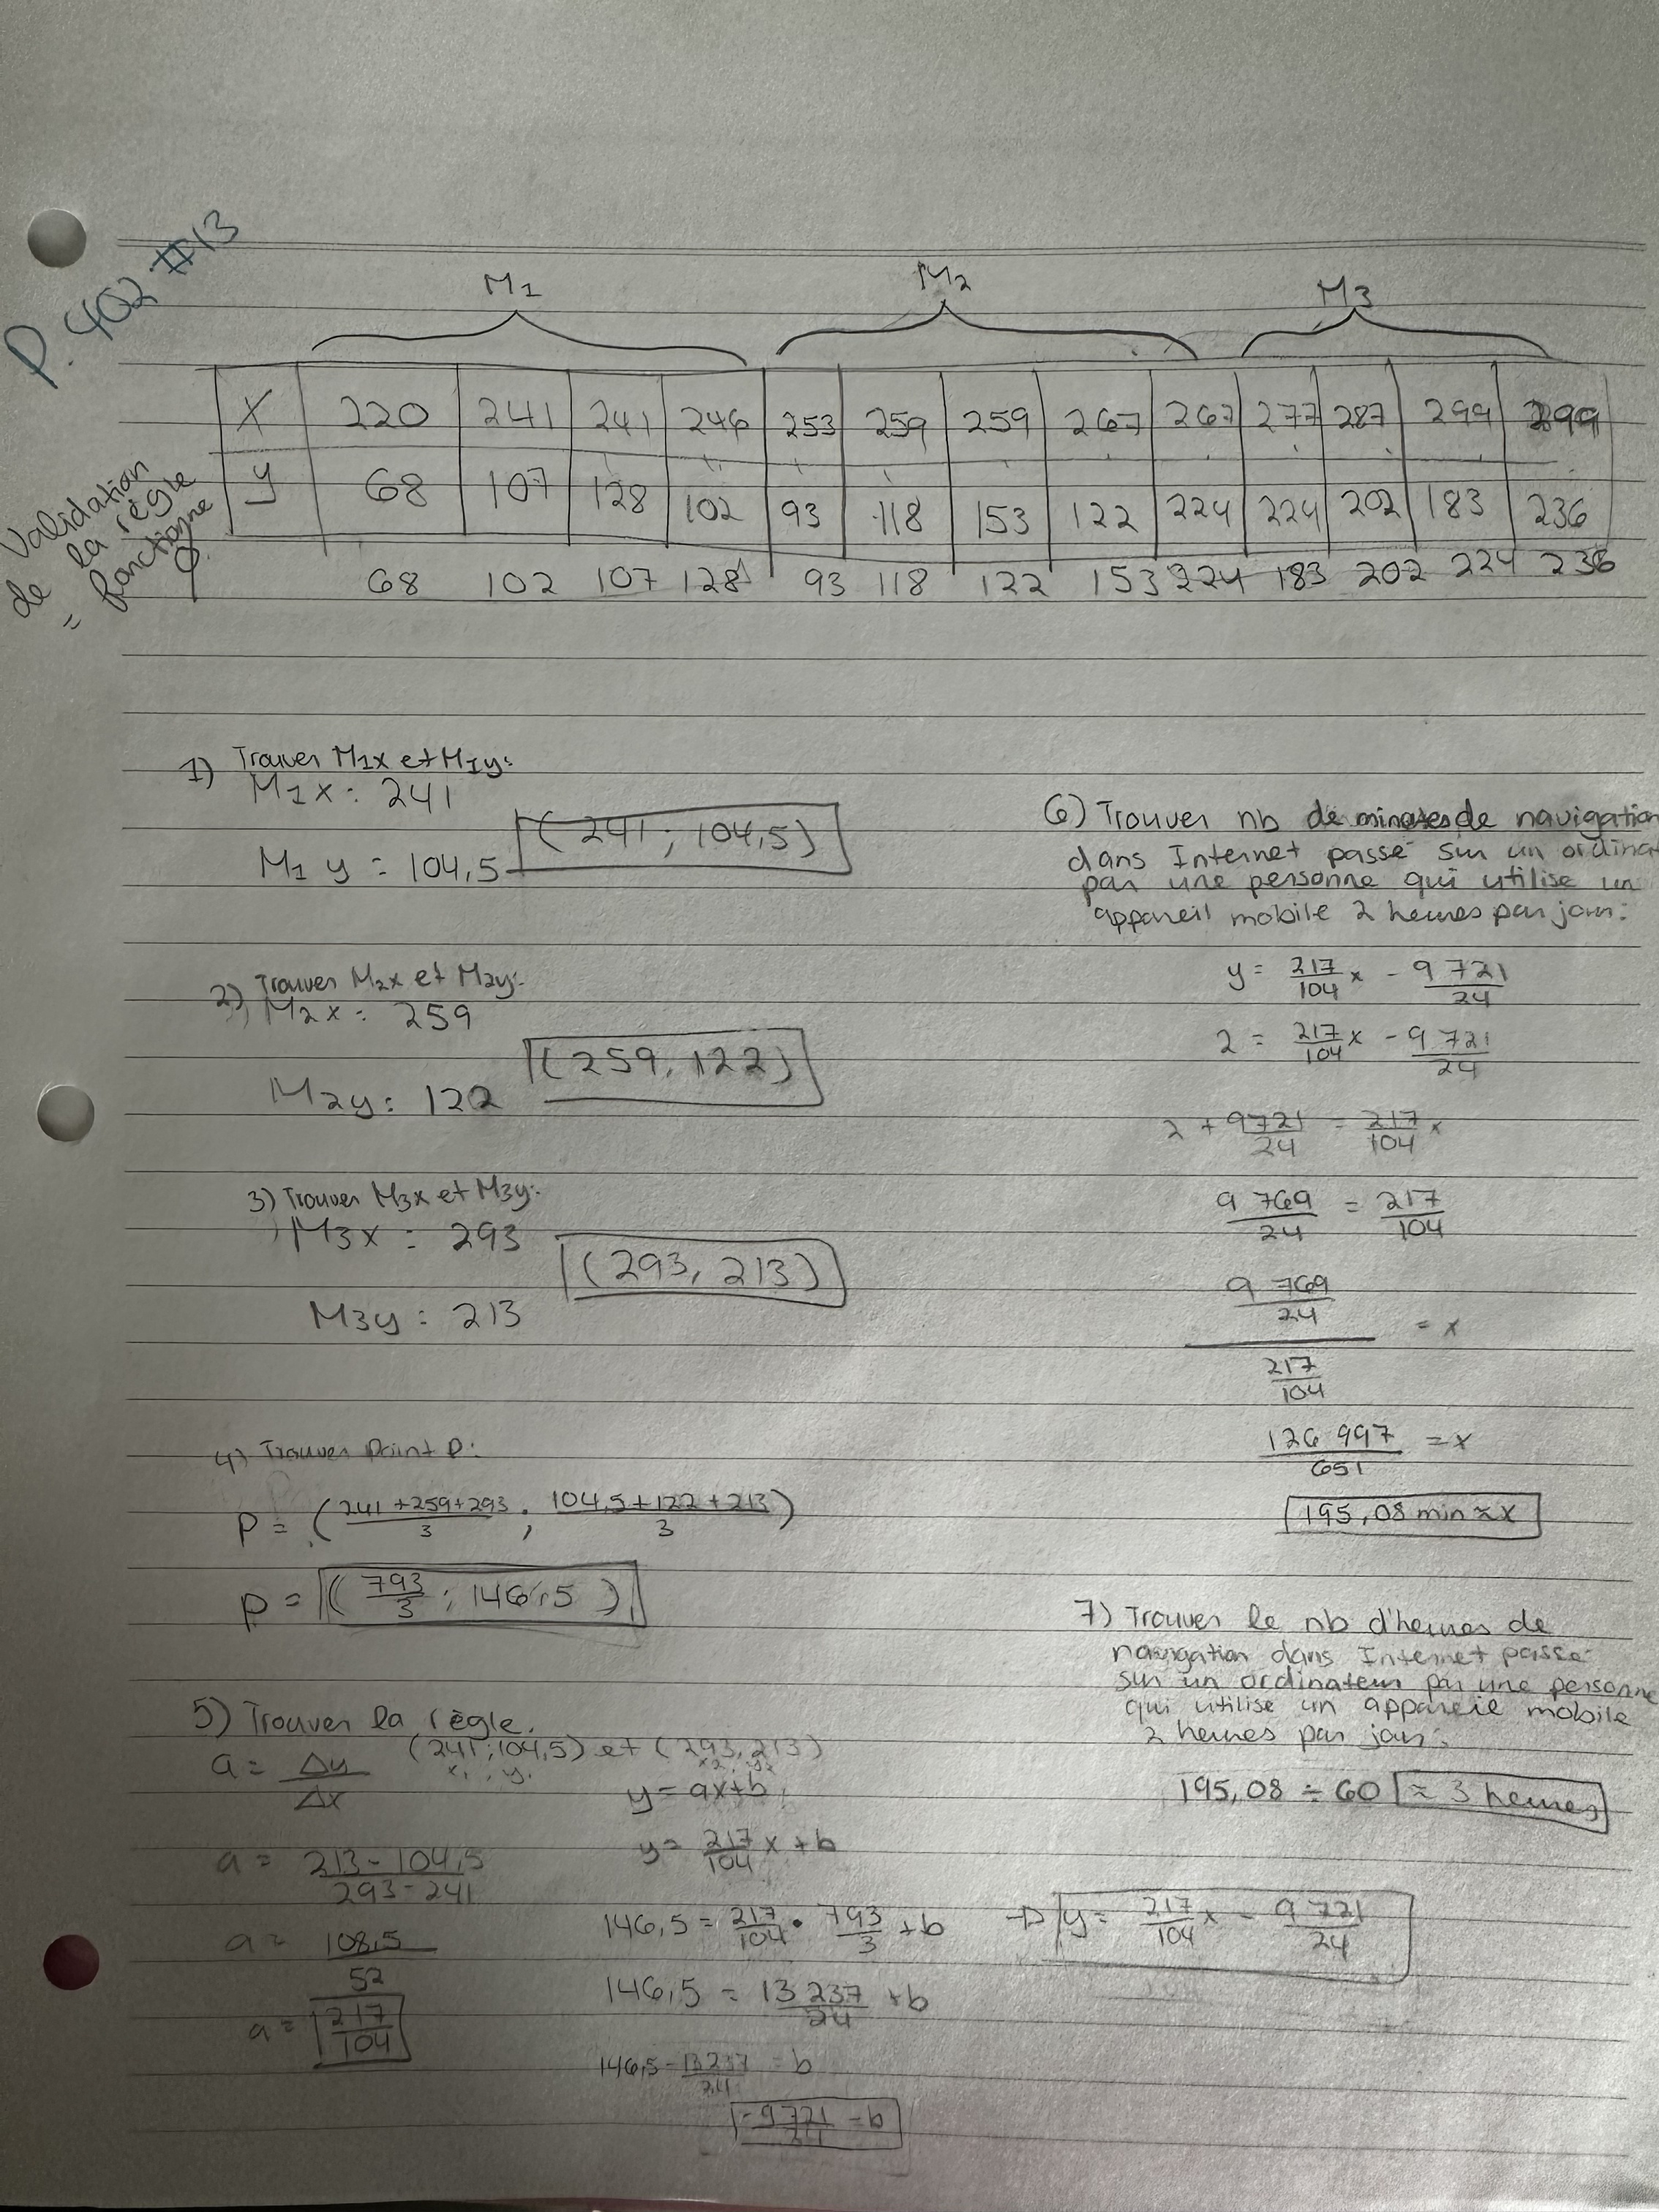 P. 402 #13
Validation
de la règle
= fonctionne
M1 M2 M3
X 220 241 241 246 253 259 259 267 267 277 287 299 299
y 68 107 128 102 93 118 153 122 224 224 202 183 236
68 102 107 128 93 118 122 153 224 183 202 224 236
1) Trouver M1x et M1y:
M1x: 241
(241; 104,5)
M1y = 104,5
2) Trouver M2x et M2y:
M2x: 259
(259, 122)
M2y: 122
3) Trouver M3x et M3y:
M3x : 293
(293, 213)
M3y : 213
4) Trouver Point P:
P = (241+259+293/3 ; 104,5+122+213/3)
P = (793/3 ; 146,5)
5) Trouver la règle.
a = Δy/Δx
(241;104,5) et (293,213)
x1, y1 x2, y2
a = 213-104,5/293-241
a = 108,5/52
a = 217/104
y = ax+b
y = 217/104 x + b
146,5 = 217/104 • 793/3 + b
146,5 = 13 237/24 + b
146,5 - 13237/24 = b
-9 721/24 = b
→ y = 217/104 x - 9 721/24
6) Trouver nb de minutes de navigation
dans Internet passé sur un
par une personne qui utilise un
appareil mobile 2 heures par jour:
y = 217/104 x - 9 721/24
2 = 217/104 x - 9 721/24
2 + 9721/24 = 217/104 x
9 769/24 = 217/104
9 769/24 / 217/104 = x
126 997/651 = x
195,08 min ≈ x
7) Trouver le nb d'heures de
navigation dans Internet passé
sur un ordinateur par une personne
qui utilise un appareil mobile
2 heures par jour:
195,08 ÷ 60 ≈ 3 heures